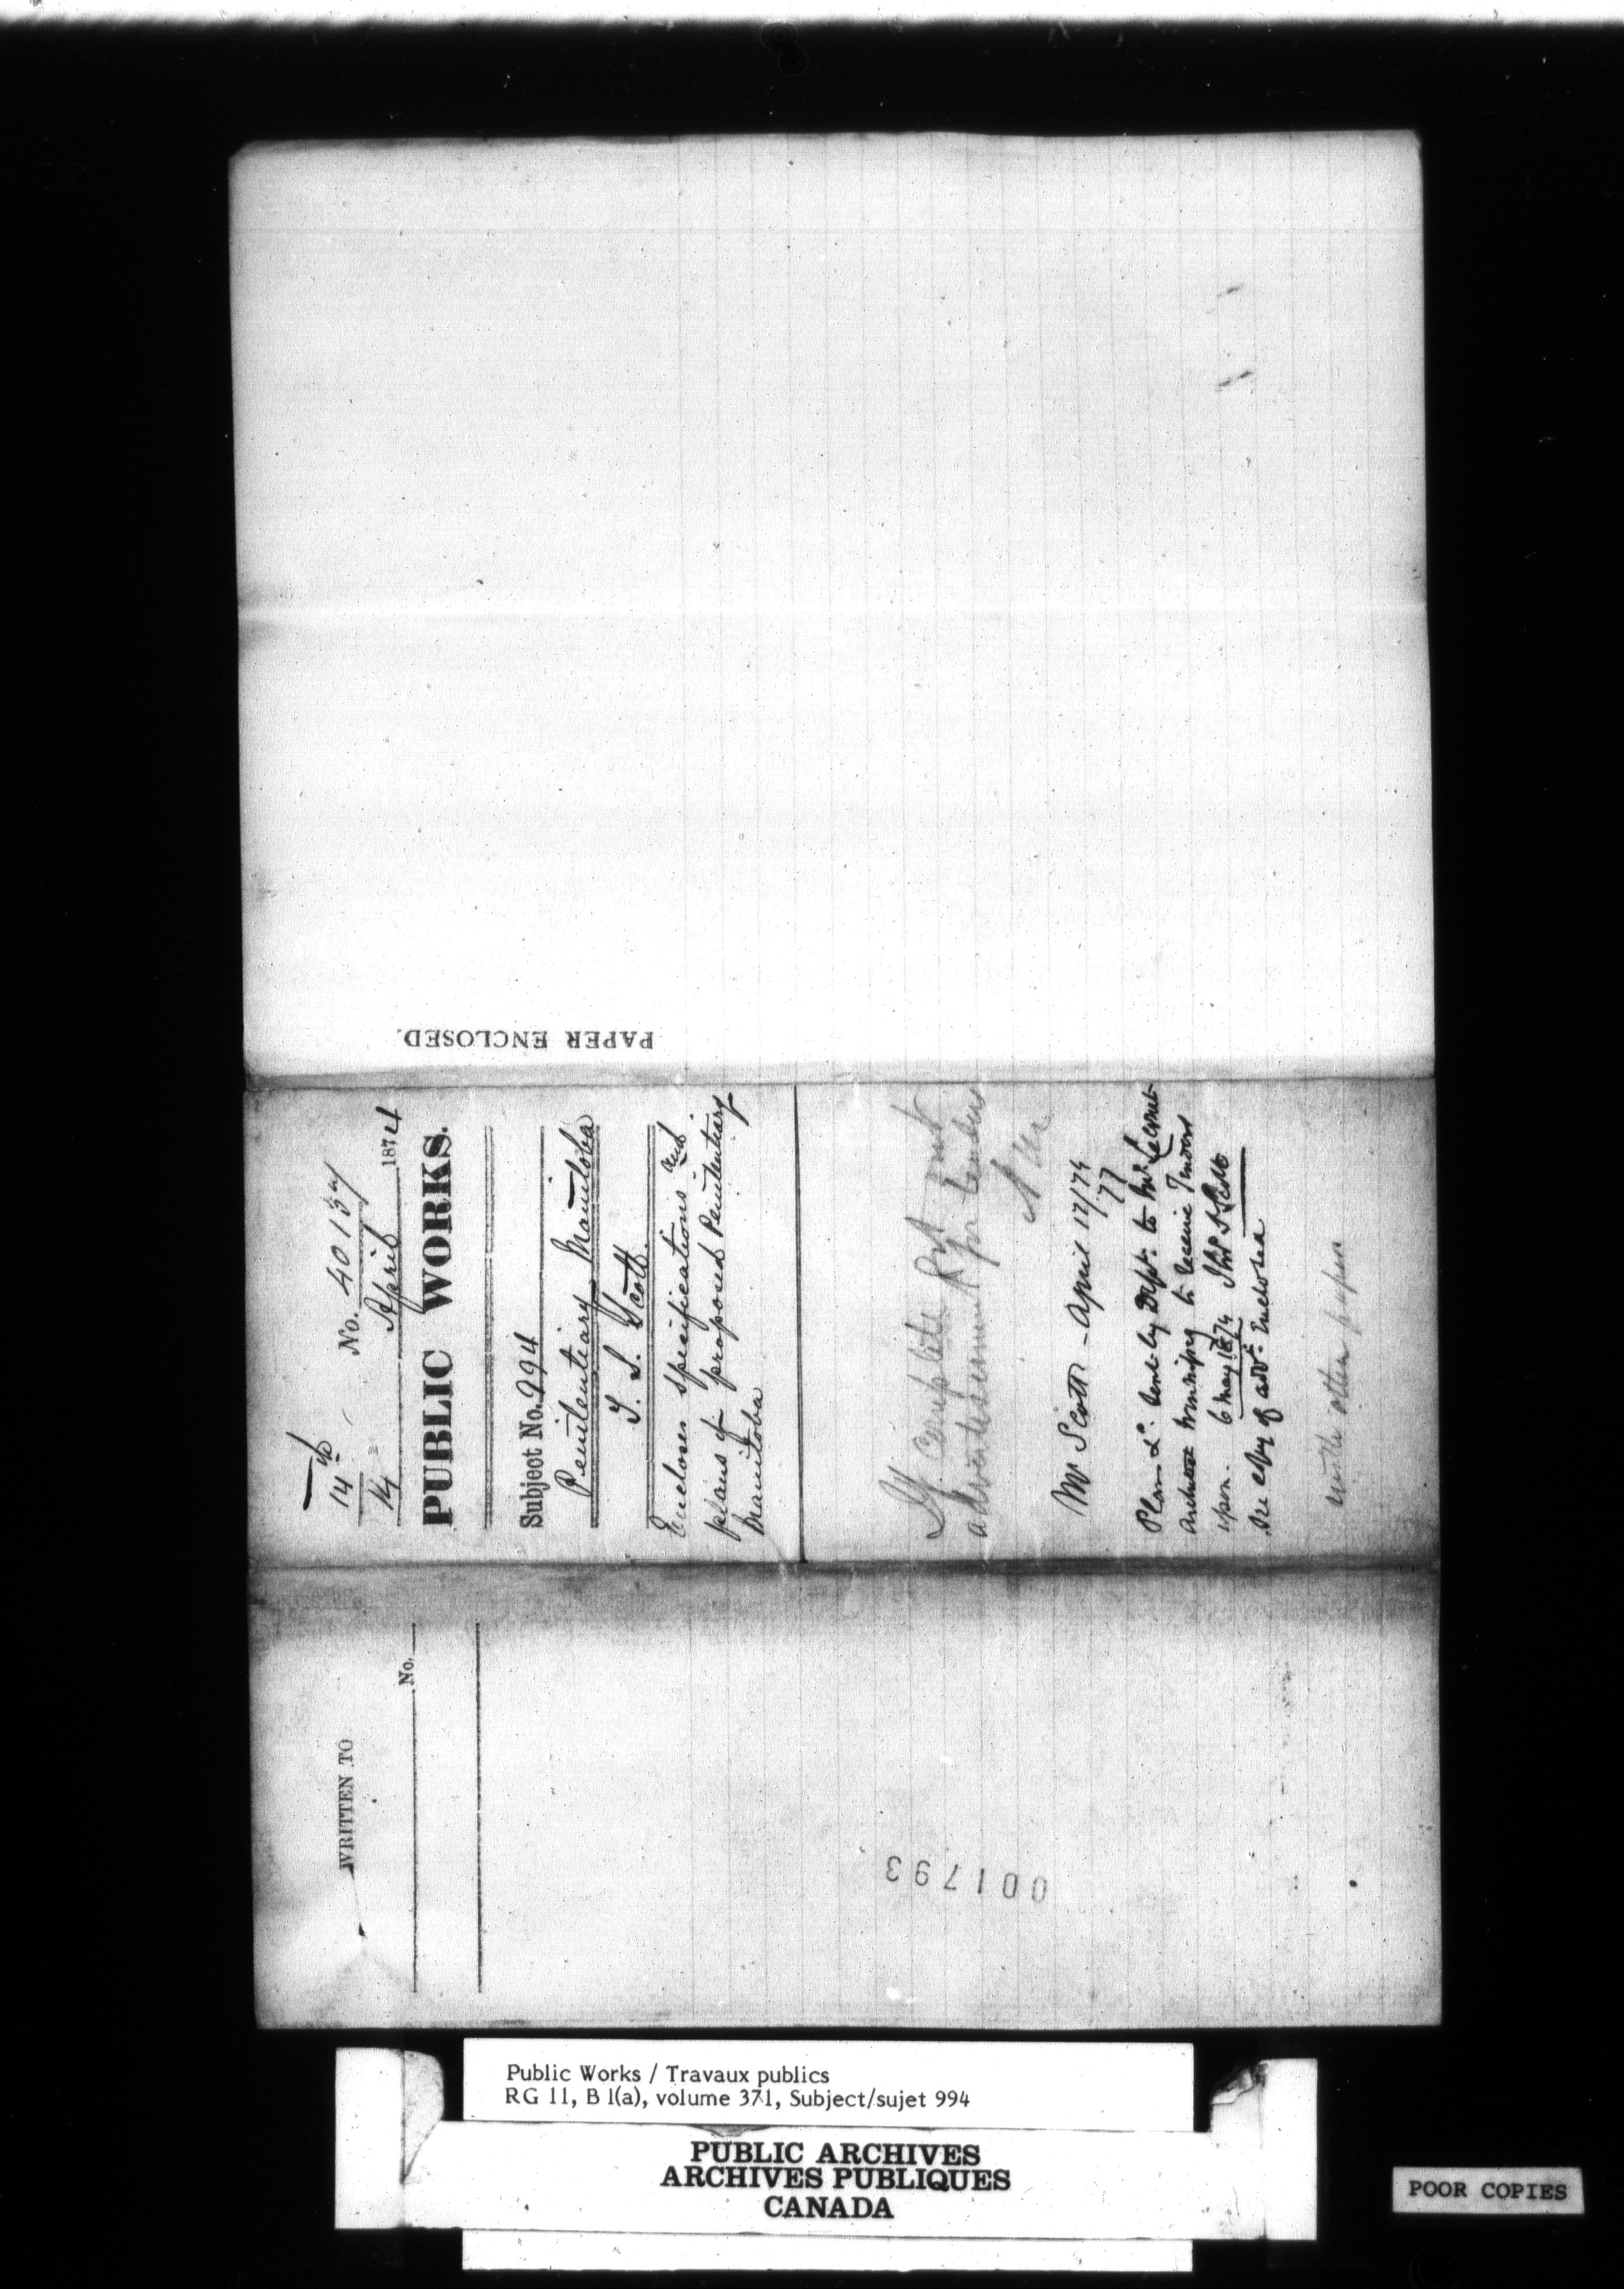 PAPER ENCLOSED.
14th
No. 40137
14 April 1874
PUBLIC WORKS.
Subject No. 994
Penitentiary Manitoba
T. S. Scott.
Encloses specifications and
plans of proposed Penitentiary
Manitoba
If complete put
advertisement for tenders
Mr Scott - April 17/74
77
Plans &c. sent by Dept. to Mr
Winnipeg to receive
upon. 6 May 1874 Thos S Scott
See copy of advt. Enclosed
with other papers
WRITTEN TO
No.
001793
Public Works / Travaux publics
RG 11, B 1(a), volume 371, Subject/sujet 994
PUBLIC ARCHIVES
ARCHIVES PUBLIQUES
CANADA
POOR COPIES